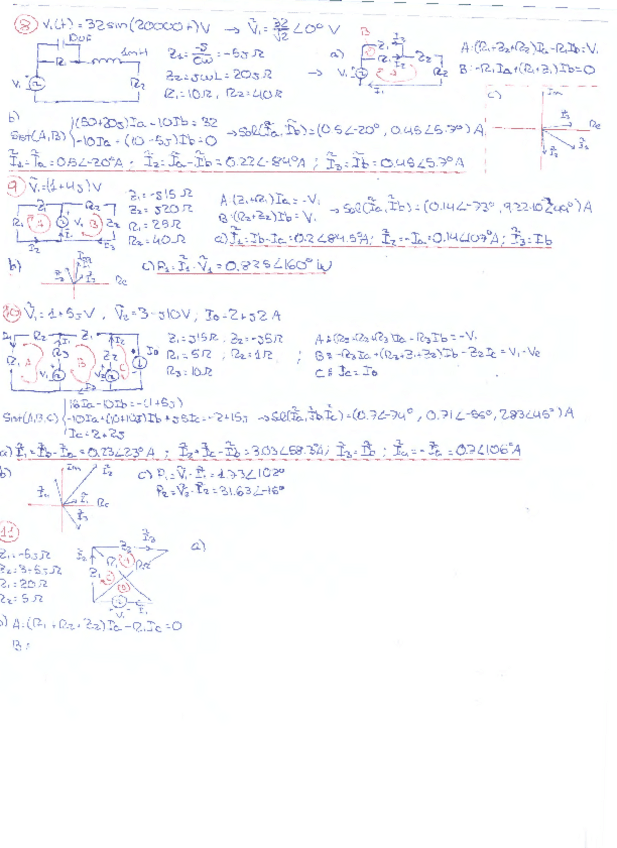 8 V₁(t) = 32 sin(20000t) V → Ṽ₁ = 32/√2 ∠0° V
10uF
1mH
R₂
V₁
Z₁ = -j/Cω = -5j Ω
Z₂ = jωL = 20j Ω
R₁ = 10Ω, R₂ = 40Ω
a)
A: (R₁+Z₂+R₂)Ia - R₁Ib = V₁
B: -R₁Ia + (R₁+Z₁)Ib = 0
c) Im
Re
b)
Sist(A,B) { (50+20j)Ia - 10Ib = 32
-10Ia + (10-5j)Ib = 0 → Sol(Ĩa, Ĩb) = (0.5∠-20°, 0.45∠5.7°) A
Ĩ₁ = Ĩa = 0.5∠-20° A ; Ĩ₂ = Ĩa - Ĩb = 0.22∠-84° A ; Ĩ₃ = Ĩb = 0.45∠5.7° A
9 Ṽ₁ = (1+4j) V
Z₁ = -j15 Ω
Z₂ = j20 Ω
R₁ = 25Ω
R₂ = 40Ω
A: (Z₁+R₁)Ia = -V₁
B: (R₂+Z₂)Ib = V₁ → Sol(Ĩa, Ĩb) =
a) Ĩ₁ = Ib - Ia = 0.2∠84.5° A ; Ĩ₂ = -Ia = 0.14∠107° A ; Ĩ₃ = Ib
b)
Re
c) P₁ = Ĩ₁ · Ṽ₁ = 0.825∠160° W
10 Ṽ₁ = 1+5j V, Ṽ₂ = 3-j10 V ; I₀ = 2+j2 A
Z₁ = j15 Ω, Z₂ = -j5 Ω
R₁ = 5Ω ; R₂ = 1Ω ;
R₃ = 10Ω
A: (R₁+R₂+R₃)Ia - R₃Ib = -V₁
B: -R₃Ia + (R₃+Z₁+Z₂)Ib - Z₂Ic = V₁ - V₂
C: Ic = I₀
Sist(A,B,C) { 16Ia - 10Ib = -(1+5j)
-10Ia + (10+10j)Ib + j5Ic = -2+15j → Sol(Ĩa, Ĩb, Ĩc) = (0.7∠-74°, 0.71∠-56°, 2.83∠45°) A
Ic = 2+2j
a) Ĩ₁ = Ĩb - Ĩa = 0.23∠23° A ; Ĩ₂ = Ĩc - Ĩb = 3.03∠58.3° A ; Ĩ₃ = Ĩb ; Ĩ₄ = -Ĩa = 0.7∠106° A
b)
Im
Re
c) P₁ = Ṽ₁ · Ĩ₁ = 1.73∠102°
P₂ = Ṽ₂ · Ĩ₂ = 31.63∠-16°
11
Z₁ = -5j Ω
Z₂ = 3-5j Ω
R₁ = 20 Ω
R₂ = 5 Ω
a)
b) A: (R₁+R₂+Z₂)Ia - R₁Ic = 0
B: